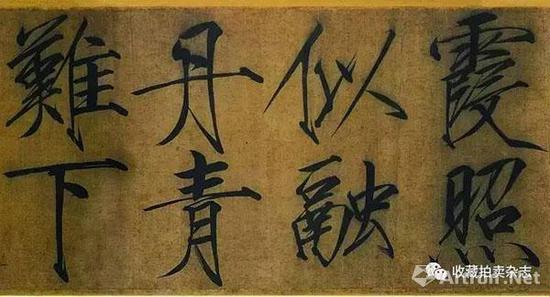 霞照
似融
丹青
難下
收藏拍卖杂志
Artron.Net